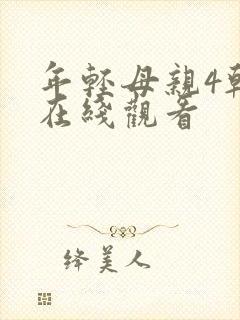 年輕母親4韓
在綫觀看
绛美人